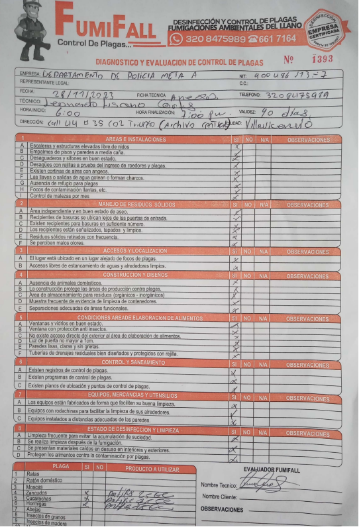 FUMIFALL
Control De Plagas...
DESINFECCIÓN Y CONTROL DE PLAGAS
FUMIGACIONES AMBIENTALES DEL LLANO
320 8475989 661 7164
EMPRESA CERTIFICADA
DIAGNOSTICO Y EVALUACION DE CONTROL DE PLAGAS
Nº 1393
EMPRESA: DEPARTAMENTO DE POLICIA META A
REPRESENTANTE LEGAL
FECHA 28/11/2023
FICHA TECNICA Anexo
TELEFONO 3208475989
TECNICO Leonardo
HORA INICIO 6:00
HORA FINALIZACIÓN
VALIDEZ 90 días
DIRECCIÓN Villavicencio
1 AREAS E INSTALACIONES SI NO N/A OBSERVACIONES
A Exteriores y estructuras elevadas libre de nidos
B Empalmes de pisos y paredes a media caña.
C Desagüaderos y sifones en buen estado.
D Desagües con rejillas a prueba del ingreso de roedores y plagas
E Existen cortinas de aire con angeos.
F Las llaves o salidas de agua gotean o forman charcos.
G Ausencia de refugio para plagas
H Focos de contaminación llantas, etc.
I Control de malezas por mes
2 MANEJO DE RESIDUOS SOLIDOS SI NO N/A OBSERVACIONES
A Área independiente y en buen estado de aseo.
B Recipientes de basuras se ubican lejos de las puertas de entrada.
C Existen recipientes para basuras en suficiente número.
D Los recipientes están señalizados, tapados y limpios.
E Residuos sólidos retirados con frecuencia.
F Se perciben malos olores.
3 ACCESOS Y LOCALIZACION SI NO N/A OBSERVACIONES
A El lugar está ubicado en un lugar alejado de focos de plagas.
B Accesos libres de estancamiento de aguas y alrededores limpios.
4 CONSTRUCCION Y DISEÑOS SI NO N/A OBSERVACIONES
A Ausencia de animales domésticos.
B La construcción protege las áreas de producción contra plagas.
C Área de almacenamiento para residuos (orgánicos - inorgánicos)
D Muestra frecuente de evidencia de limpieza de contenedores.
E Separaciones adecuadas de áreas funcionales.
5 CONDICIONES AREA DE ELABORACION DE ALIMENTOS SI NO N/A OBSERVACIONES
A Ventanas y vidrios en buen estado.
B Ventanas con protección anti insectos.
C No existe acceso directo del exterior al área de elaboración de alimentos.
D Luz de puerta no mayor a 1cm.
E Paredes lisas, claras y sin grietas.
F Tuberías de drenajes residuales bien diseñados y protegidos con rejilla.
6 CONTROL Y SANEAMIENTO SI NO N/A OBSERVACIONES
A Existen registros de control de plagas.
B Existen programas de control de plagas.
C Existen planos de ubicación y puntos de control de plagas.
7 EQUIPOS, MERCANCIAS Y UTENSILIOS SI NO N/A OBSERVACIONES
A Los equipos están fabricados de forma que faciliten su buena limpieza.
B Equipos con rodachines para facilitar la limpieza de sus alrededores.
C Equipos instalados a distancias adecuadas de las paredes
8 ESTADO DE DESINFECCION Y LIMPIEZA SI NO N/A OBSERVACIONES
A Limpieza frecuente para evitar la acumulación de suciedad.
B Se realiza limpieza después de la fumigación.
C Se presenta de materiales caídos en desuso en interiores y exteriores.
D Protegen los alimentos contra la contaminación por plagas.
PLAGA SI NO PRODUCTO A UTILIZAR
EVALUADOR FUMIFALL
1 Ratas
2 Ratón doméstico
3 Moscas
4 Zancudos
5 Cucarachas
6 Hormigas
7 Abejas
8 Insectos de granos
9 Insectos de madera
Nombre Técnico:
Nombre Cliente:
OBSERVACIONES